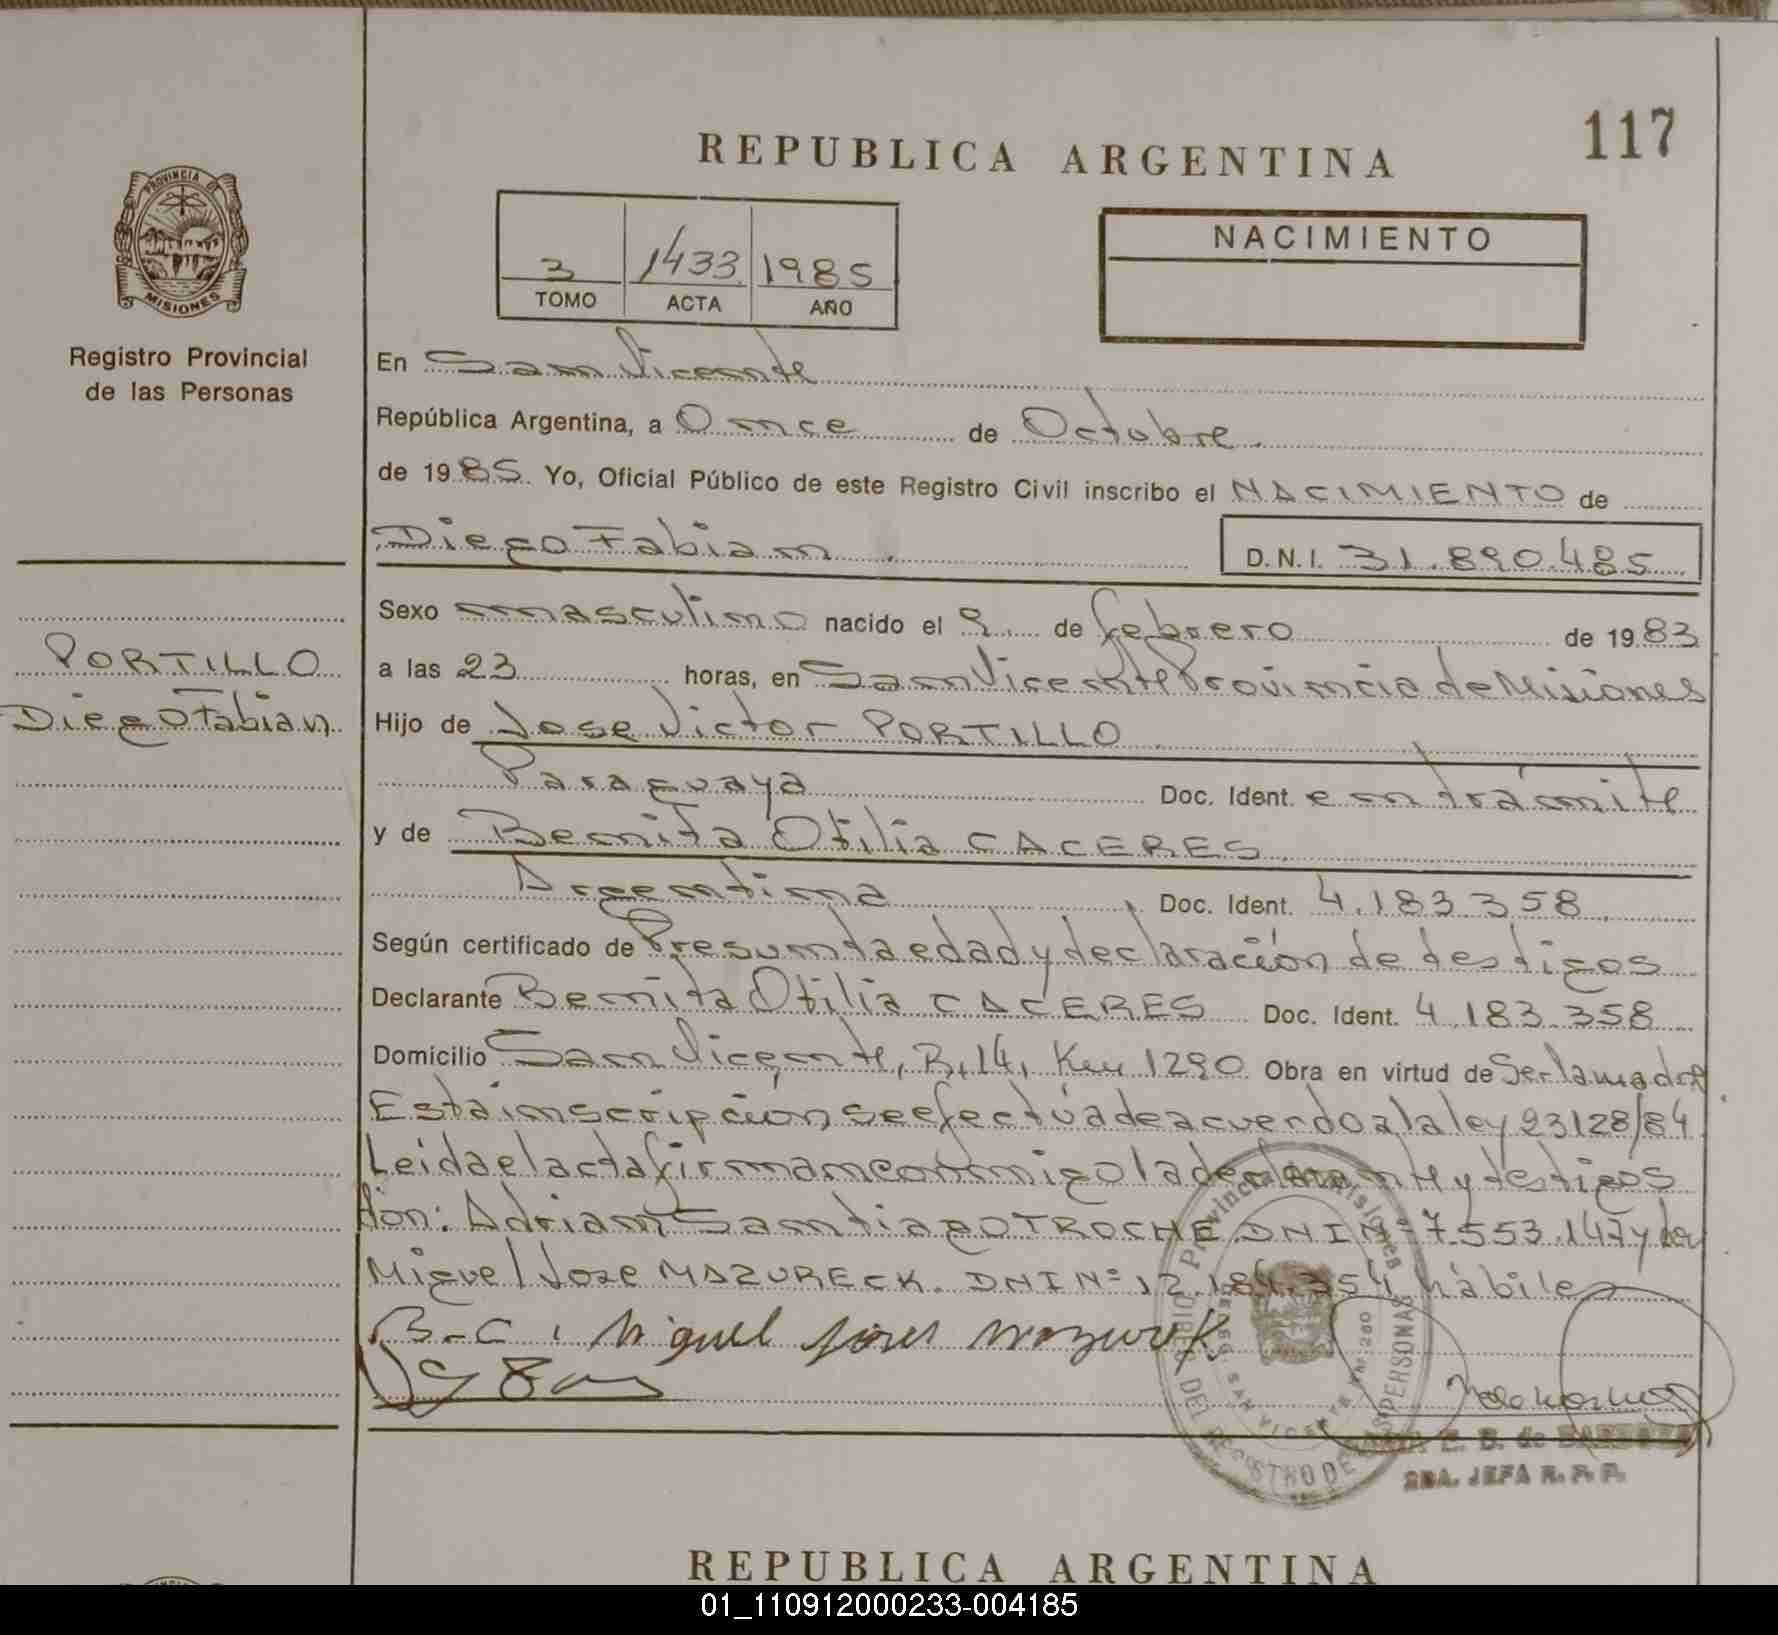 117
REPUBLICA ARGENTINA
PROVINCIA DE
MISIONES
Registro Provincial
de las Personas
3 1433 1985
TOMO ACTA AÑO
NACIMIENTO
En San Vicente
República Argentina, a Once de Octubre.
de 1985. Yo, Oficial Público de este Registro Civil inscribo el NACIMIENTO de
Diego Fabian. D.N.I. 31.890.485
PORTILLO
Diego Fabian
Sexo masculino nacido el 9 de febrero de 1983
a las 23 horas, en San Vicente Provincia de Misiones
Hijo de Jose Victor PORTILLO
Paraguaya Doc. Ident. en trámite
y de Benita Otilia CACERES
Argentina Doc. Ident. 4.183.358
Según certificado de Presunta edad y declaración de testigos
Declarante Benita Otilia CACERES Doc. Ident. 4.183.358
Domicilio San Vicente, R.14, Km 1290 Obra en virtud de Ser la madre
Esta inscripción se efectúa de acuerdo a la ley 23128/84
Leida el acta firman conmigo la declarante y testigos
don: Adrian Santiago TROCHE DNI Nº 7.553.147 y don
Miguel Jose MAZURECK. DNI Nº 12.184.354 hábiles
B-C. Miguel
Provincia de Misiones
DEL REGISTRO DE LAS PERSONAS
SAN VICENTE
E. B. de
2DA. JEFA R. P. P.
REPUBLICA ARGENTINA
01_110912000233-004185